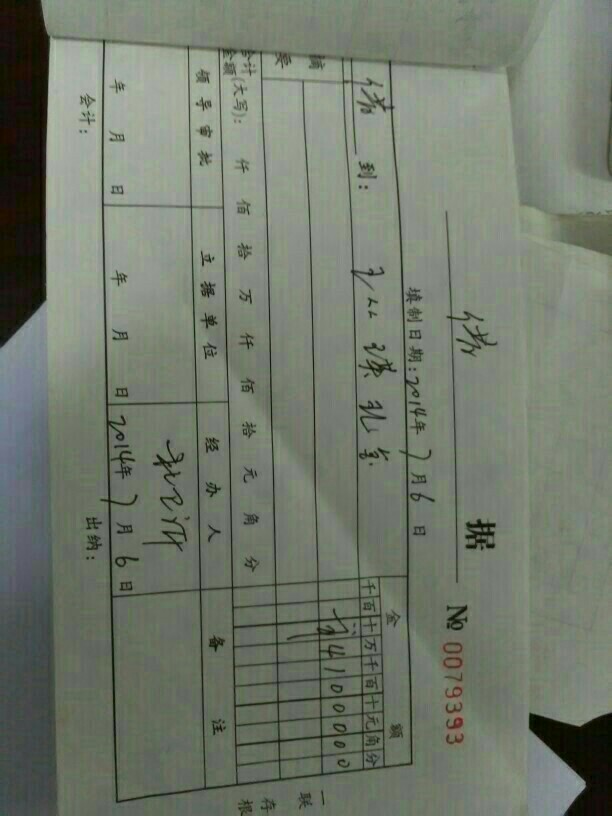 借 据
№ 0079393
填制日期:2014年7月6日
借 到:
摘 要
金 额
千百十万千百十元角分
¥41000000
合计金额(大写): 仟 佰 拾 万 仟 佰 拾 元 角 分
领导审批
立据单位
经办人
备 注
年 月 日
年 月 日
2014年7月6日
会计:
出纳:
一联存根